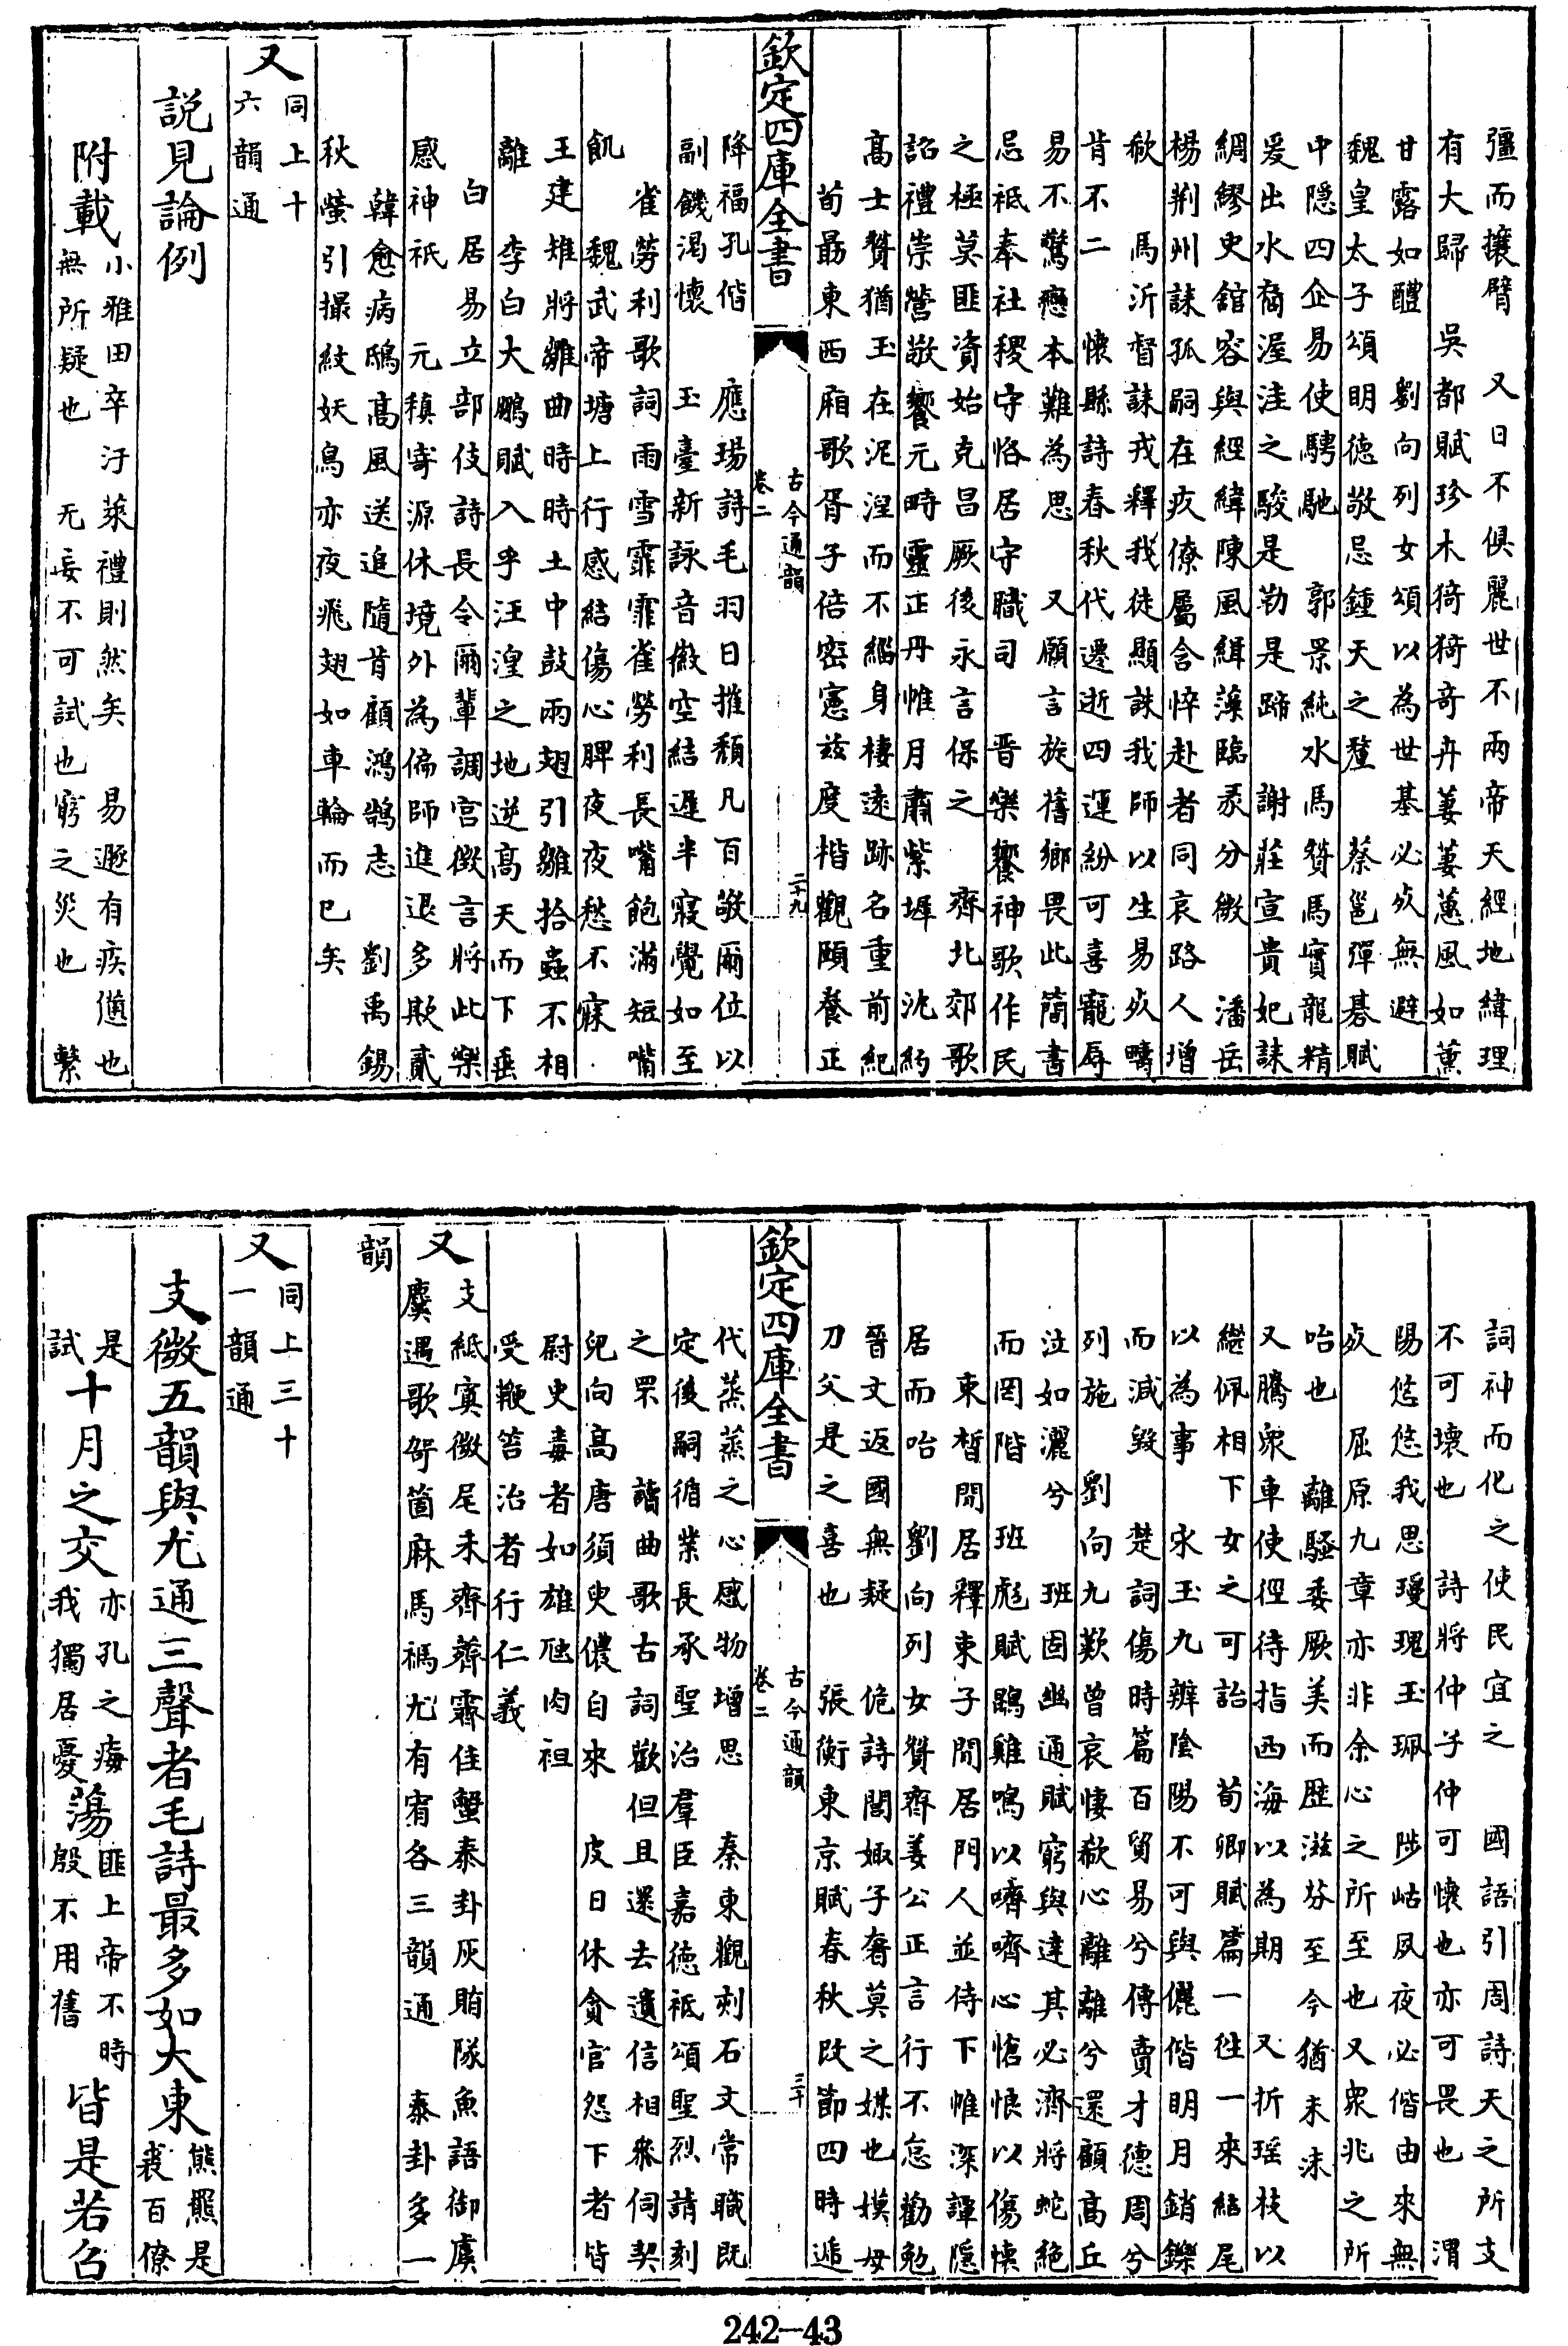 彊而攘臂　又曰不俱麗世不兩帝天經地緯理
有大歸　吳都賦珍木猗猗奇卉萋萋蕙風如薰
甘露如醴　劉向列女頌以為世基必央無避
魏皇太子頌明德敬忌鍾天之釐　蔡邕彈碁賦
中隱四企易使騁馳　郭景純水馬贊馬實龍精
爰出水裔渥洼之駿是勒是蹄　謝莊宣貴妃誄
綢繆史舘容與經緯陳風緝藻臨彖分微　潘岳
楊荆州誄孤嗣在疚僚屬含悴赴者同哀路人增
欷　馬汧督誄戎釋我徒顯誅我師以生易死疇
肯不二　懷縣詩春秋代遷逝四運紛可喜寵辱
易不驚戀本難為思　又願言旋舊鄉畏此簡書
忌祗奉社稷守恪居守職司　晉樂饗神歌作民
之極莫匪資始克昌厥後永言保之　齊北郊歌
詔禮崇營敬饗元畤靈正丹惟月肅紫墀　沈約
高士贊猶玉在泥涅而不緇身棲遠跡名重前紀
荀勗東西廂歌胥子倍密憲兹度楷觀頤養正
欽定四庫全書
古今通韻
卷二
二十九
降福孔偕　應瑒詩毛羽日摧頹凡百敬爾位以
副饑渴懷　玉臺新詠音徽空結遲半寢覺如至
雀勞利歌詞雨雪霏霏雀勞利長嘴飽滿短嘴
飢　魏武帝塘上行感結傷心脾夜夜愁不寐
王建雉將雛曲時時土中鼓兩翅引雛拾蟲不相
離　李白大鵬賦入乎汪湟之地逆高天而下垂
白居易立部伎詩長令爾輩調宮徵言將此樂
感神祇　元稹寄源休境外為偏師進退多欺貳
韓愈病鴟高風送追隨肯顧鴻鵠志　劉禹錫
秋螢引撮紋妖鳥亦夜飛翅如車輪而已矣
又同上十六韻通
説見論例
附載小雅田卒汙萊禮則然矣　易遯有疾憊也
無所疑也　无妄不可試也窮之災也　繫
詞神而化之使民宜之　國語引周詩天之所支
不可壞也　詩將仲子仲可懷也亦可畏也　渭
陽悠悠我思瓊瑰玉珮　陟岵夙夜必偕由來無
死　屈原九章亦非余心之所至也又衆兆之所
咍也　離騷委厥美而歷滋芬至今猶未沬
又騰衆車使徑待指西海以為期　又折瑶枝以
繼佩相下女之可詒　荀卿賦篇一往一來結尾
以為事　宋玉九辯陰陽不可與儷偕明月銷鑠
而減毀　楚詞傷時篇百貿易兮傳賣才德周兮
列施　劉向九歎曾哀悽欷心離離兮還顧高丘
泣如灑兮　班固幽通賦窮與達其必濟將蛇絶
而罔階　班彪賦鵾雞鳴以嚌嚌心愴悢以傷懷
東晳閒居釋束子閒居門人並侍下帷深譚隱
居而咍　劉向列女贊齊姜公正言行不怠勸勉
晉文返國無疑　佹詩閭娵子奢莫之媒也嫫母
刀父是之喜也　張衡東京賦春秋改節四時遞
欽定四庫全書
古今通韻
卷二
三十
代蒸蒸之心感物增思　秦東觀刻石文常職既
定後嗣循業長承聖治羣臣嘉德祗頌聖烈請刻
之罘　讀曲歌古詞歡但且還去遺信相參伺契
兒向高唐須臾儂自來　皮日休貪官怨下者皆
尉史毒者如雄虺肉袒
受鞭笞治者行仁義
又支紙寘微尾未齊薺霽佳蟹泰卦灰賄隊魚語御虞
麌遇歌哿箇麻馬禡尤有宥各三韻通　泰卦多一
韻
又同上三十一韻通
支微五韻與尤通三聲者毛詩最多如大東熊羆是裘百僚
是試十月之交亦孔之痗我獨居憂蕩匪上帝不時殷不用舊皆是若召
242-43